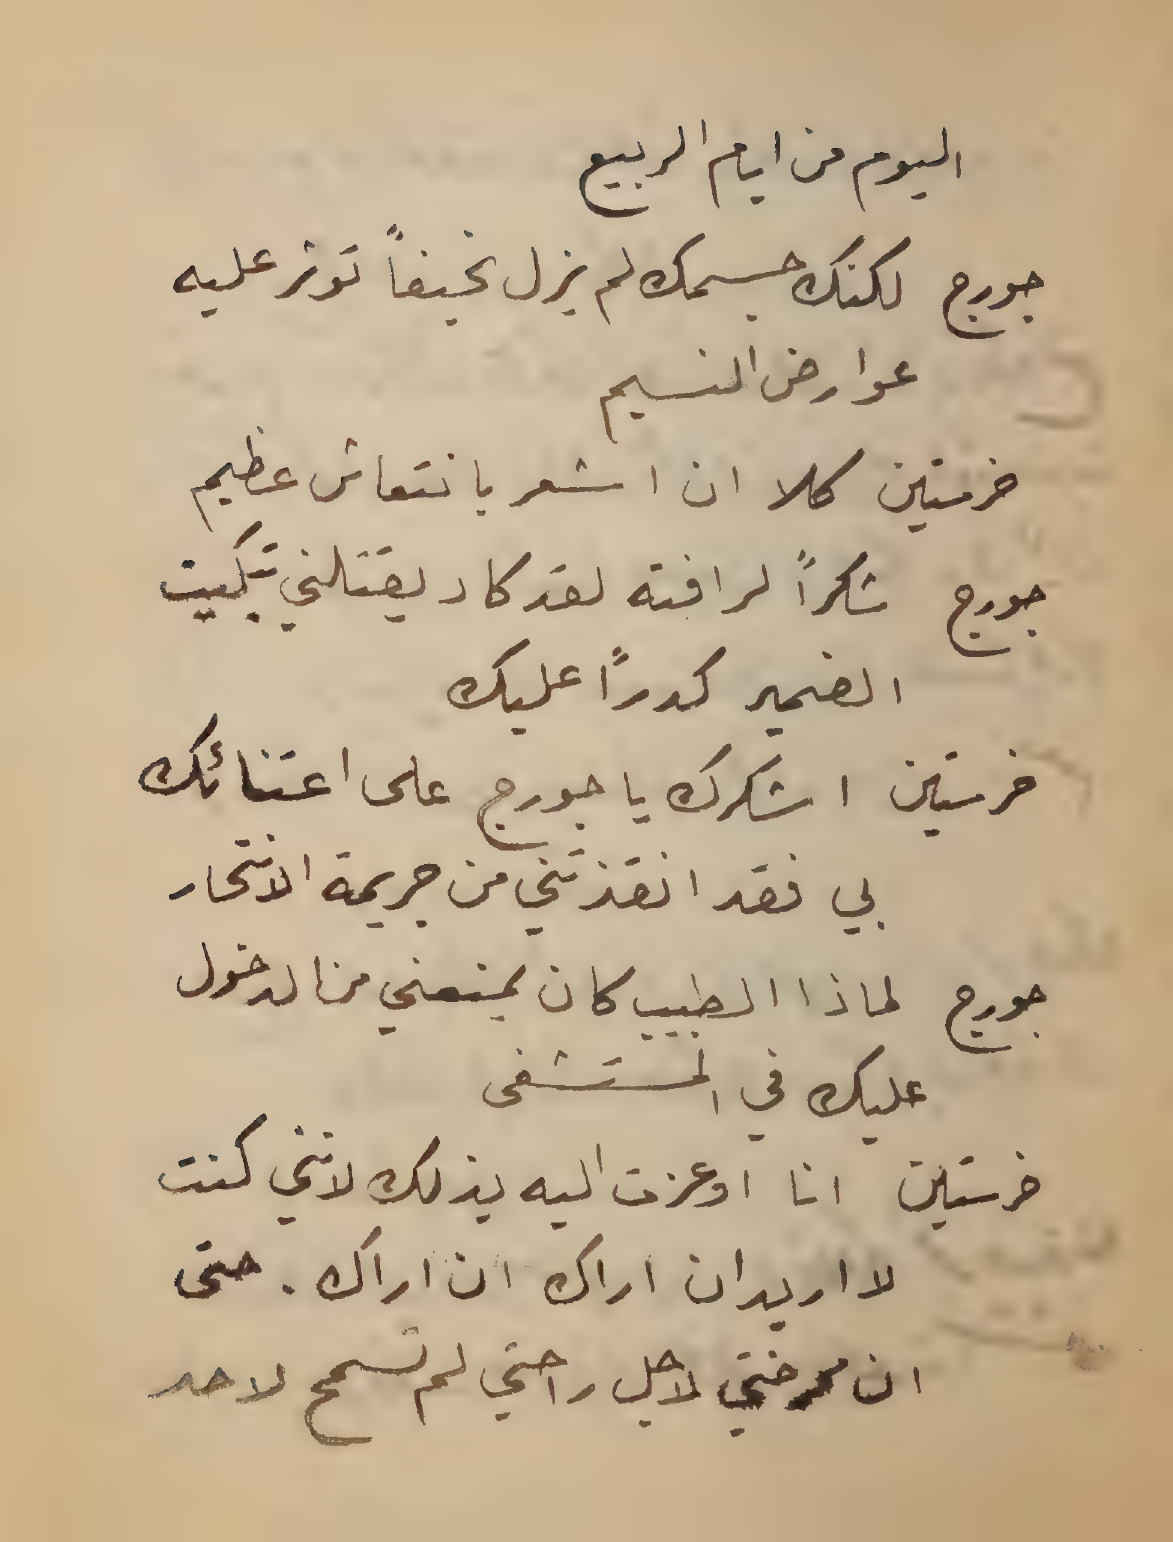 اليوم من ايام الربيع
جورج لكنك جسمك لم يزل نحيفاً توثر عليه
عوارض النسيم
خرستين كلا ان اشعر بانتعاش عظيم
جورج شكراً لرافته لقد كاد يقتلني تبكيت
الضمير كدراً عليك
خرستين اشكرك يا جورج على اعتنائك
بي فقد انقذتني من جريمة الانتحار
جورج لماذا الطبيب كان يمنعني من الدخول
عليك في المستشفى
خرستين انا اوعزت اليه بذلك لانني كنت
لا اريد ان اراك ان اراك . حتى
ان ممرضتي لاجل راحتي لم تسمح لاحد